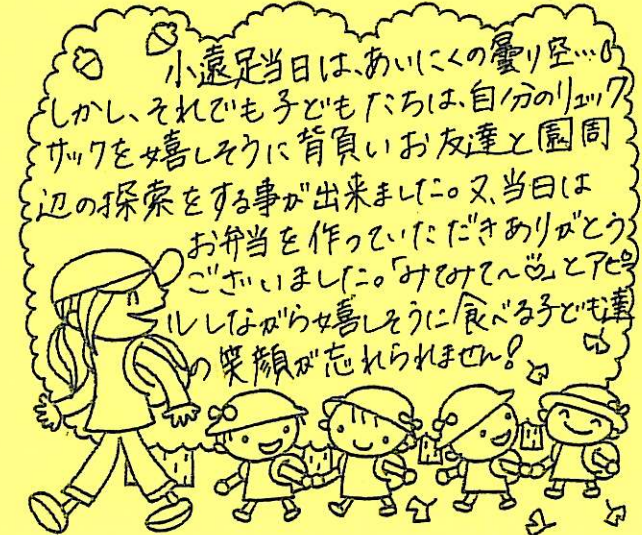 小遠足当日は、あいにくの曇り空…。
しかし、それでも子どもたちは、自分のリュック
サックを嬉しそうに背負いお友達と園周
辺の探索をする事が出来ました。又、当日は
お弁当を作っていただきありがとう
ございました。「みてみて〜♡」とアピー
ルしながら嬉しそうに食べる子ども達
の笑顔が忘れられません!